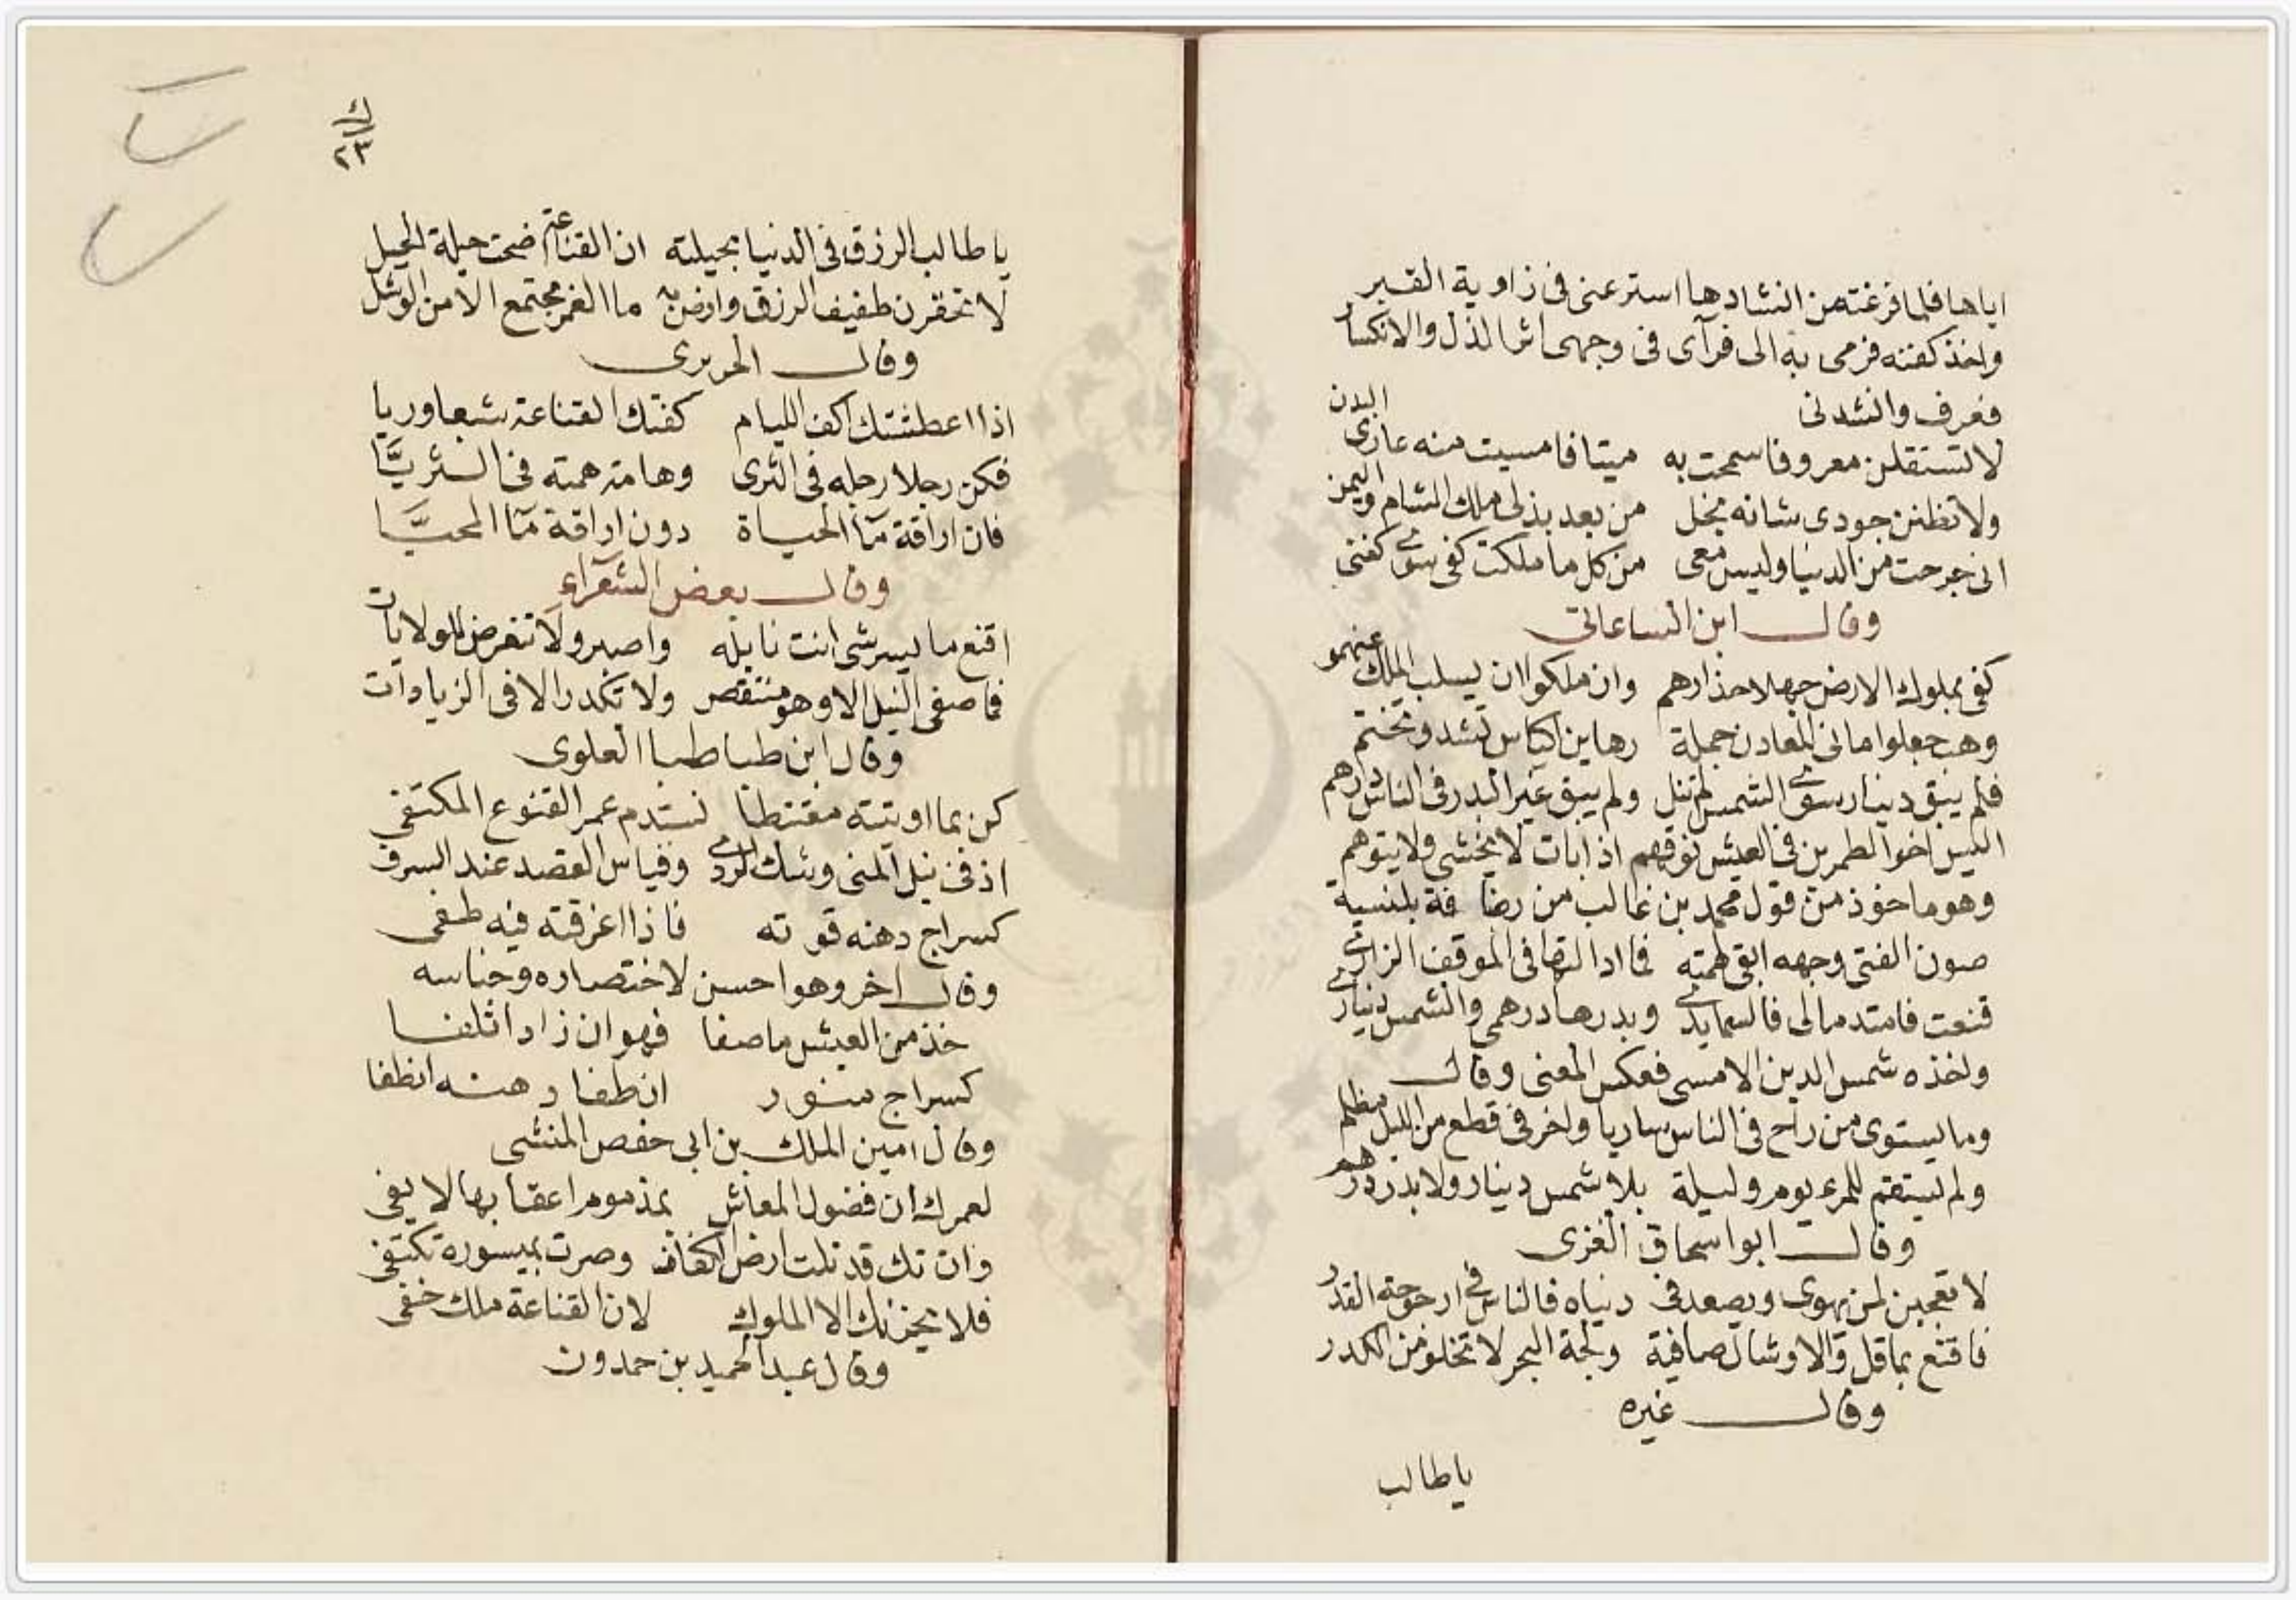 اياها فلما فرغته من انشادها استتر عنى فى زاوية القبر
واخذ كفنه فرمى به الى فرآى فى وجهى اثر الذل والانكسار
فعرف وانشدنى
لا تستقلن معروفا سمحت به ميتا فامسيت منه عارى البدن
ولا تظنن جودى شانه بخل من بعد بذلى ملك الشام واليمن
انى خرجت من الدنيا وليس معى من كل ما ملكت كفى سوى كفنى
وقال ابن الساعاتى
كفى بملوك الارض جهلا حذارهم وان ملكوا ان يسلب الملك عنهمو
وهب جعلوا ما فى المعادن جملة رهاين اكياس تشد وتختم
فلم يبق دينار سوى الشمس لم تنل ولم يبق غير البدر فى الناس درهم
اليس اخو الطمرين فى العيش فوقهم اذا بات لا يخشى ولا يتوهم
وهو ماخوذ من قول محمد بن غالب من رصافة بلنسية
صون الفتى وجهه ابقى لهمته فما ادا لتها فى الموقف الزارى
قنعت فامتد مالى فالسما يدى وبدرها درهمى والشمس دينارى
واخذه شمس الدين الامسى فعكس المعنى وقال
وما يستوى من راح فى الناس ساريا واخر فى قطع من الليل مظلم
ولم يستقم للمرء يوم وليلة بلا شمس دينار ولا بدر درهم
وقال ابو اسحاق الغزى
لا تعجبن لمن يهوى ويصعد فى دنياه فالناس فى ارجوحة القدر
فاقنع بما قل والاوشال صافية ولجة البحر لا تخلو من الكدر
وقال غيره
يا طالب
ك
٢٣
يا طالب الرزق فى الدنيا بحيلته ان القناعة اضحت حيلة الحيل
لا تحقرن طفيف الرزق وارض به ما الغمر مجتمع الا من الوشل
وقال الحريرى
اذا اعطشتك اكف الليام كفتك القناعة شبعا وريا
فكن رجلا رجله فى الثرى وهامة همته فى الثريّا
فان اراقة مآ الحياة دون اراقة مآ المحيَّا
وقال بعض الشعرآء
اقنع ما يسر شى انت نايله واصبر ولا تتعرض للولايات
فما صفى النيل الا وهو منتقص ولا تكدر الا فى الزيادات
وقال ابن طباطبا العلوى
كن بما اوتيته مغتبطا تستدم عمر القنوع المكتفى
ان فى نيل المنى وشك الردى وقياس القصد عند السرف
كسراج دهنه قوته فاذا اغرقته فيه طفى
وقال اخر وهو احسن لاختصاره وجناسه
خذ من العيش ما صفا فهو ان زاد اتلفا
كسراج منور ان طفا دهنه انطفا
وقال امين الملك بن ابى حفص المنشى
لعمرك ان فضول المعاش بمذموم اعقابها لا يفى
وان تك قد نلت ارض الكفاف وصرت بميسوره تكتفى
فلا يحزنك الا الملوك لان القناعة ملك خفى
وقال عبد الحميد بن حمدون